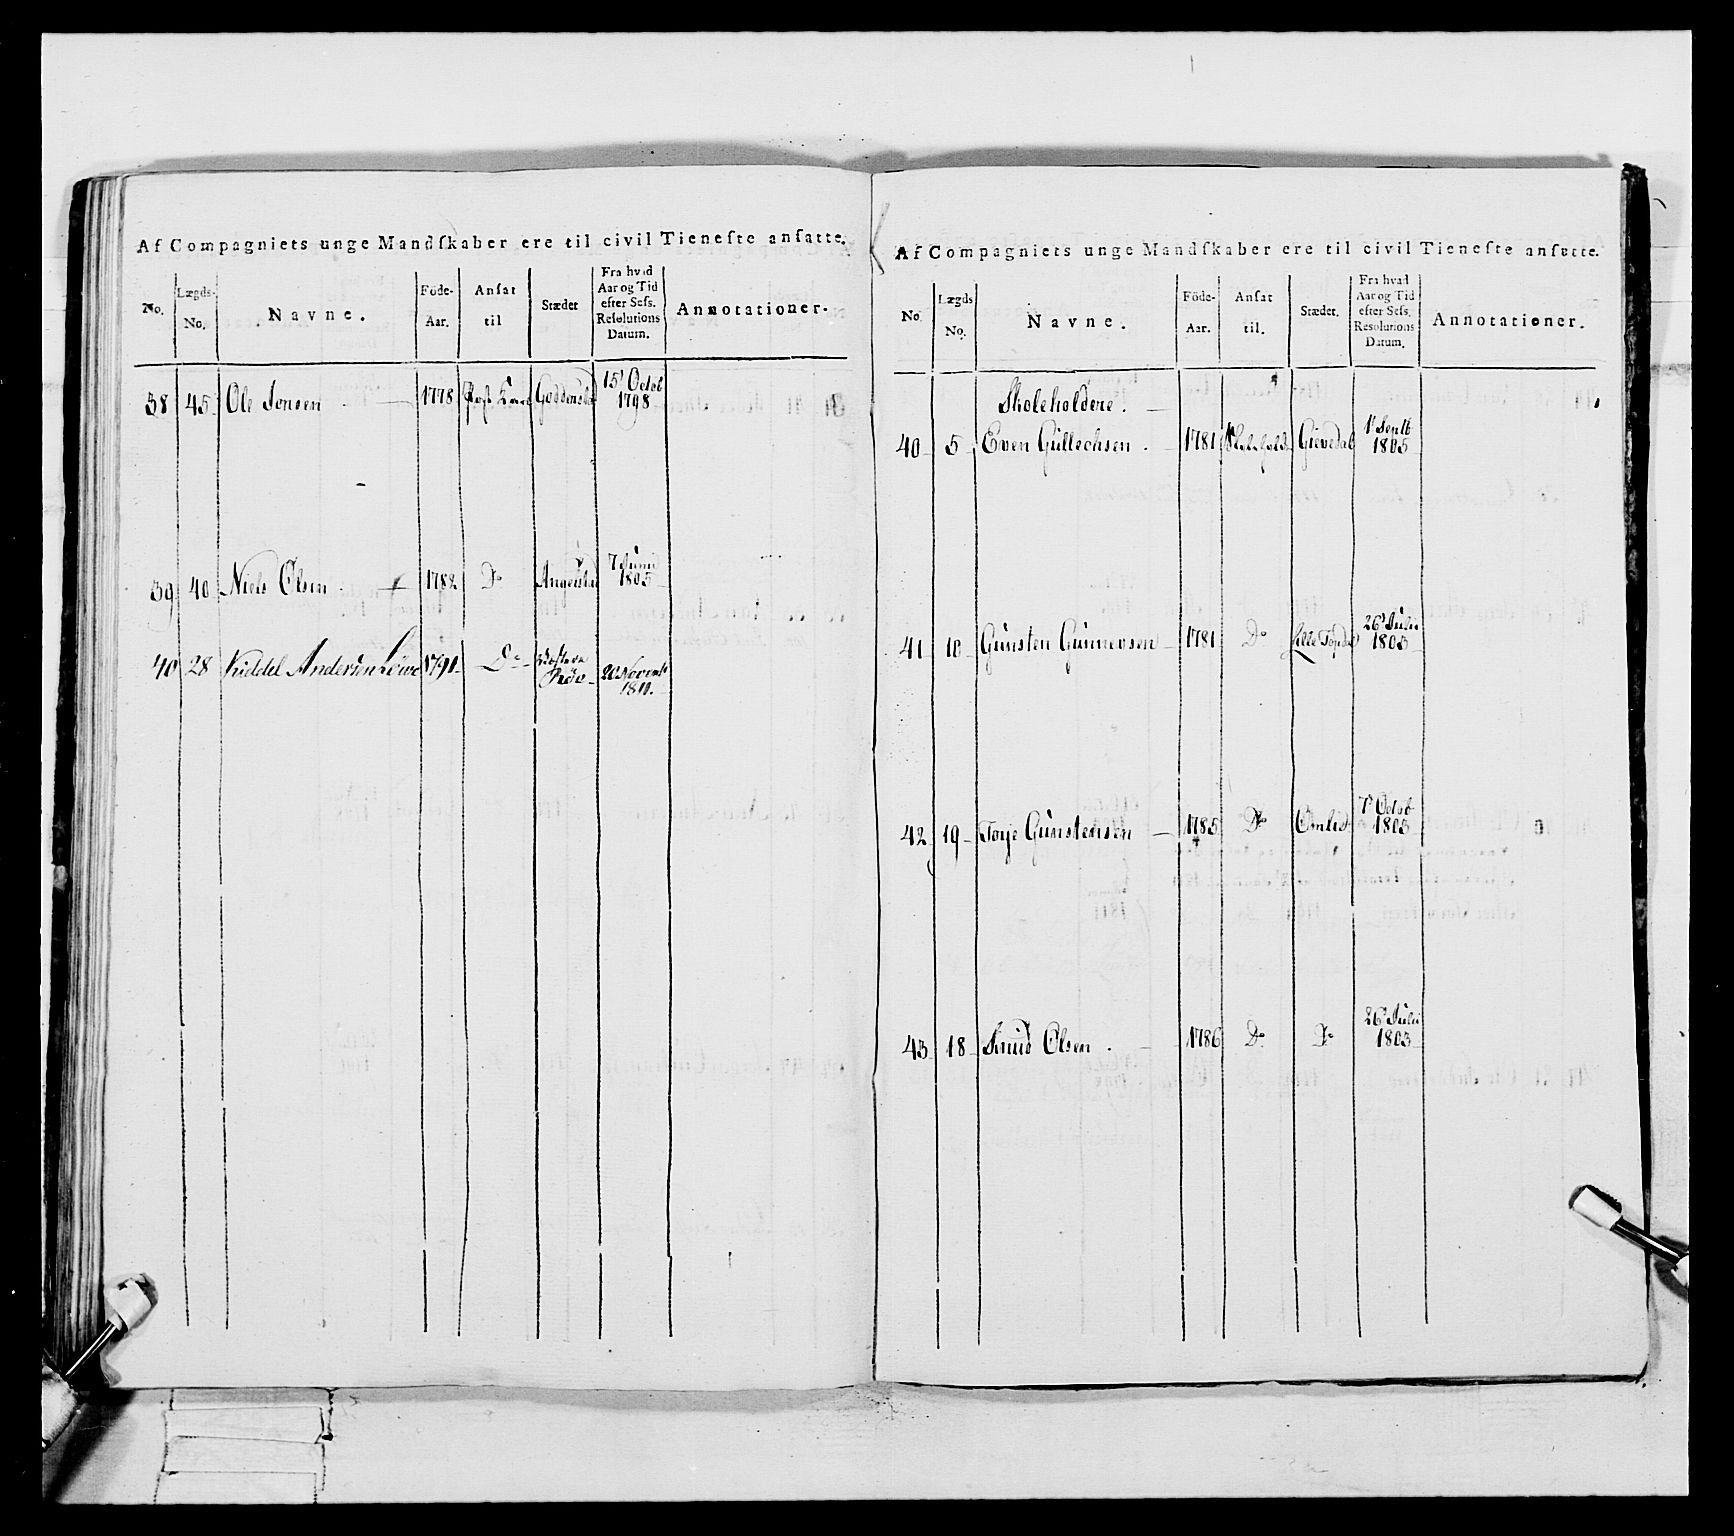 Af Compagniets unge Mandſkaber ere til civil Tieneſte anſatte.
No. Lægds-No. Navne. Föde-Aar. Anſat til Stædet Fra hvad Aar og Tid efter Sesſ. Reſolutions Datum. Annotationer.
38 45 Ole Jensen 1778 15d Octob 1798
39 40 Niels Olsen 1782 Do 7 Junii 1805
40 28 Kiddel Andersen 1791 Do 20 Novemb 1811.
Af Compagniets unge Mandſkaber ere til civil Tieneſte anſatte.
No. Lægds No. Navne. Föde-Aar. Anſat til. Stædet. Fra hvad Aar og Tid efter Sesſ. Resolutions Datum. Annotationer.
Skoleholdere.
40 5 Even Gullechsen 1781 Skolehold. Gievedal 1d Septb 1805
41 10 Gunsten Gunnersen 1781 Do Lille Topdal 26d Julii 1803
42 19 Torje Gunstensen 1785 Do Omlid 7d Octob 1805
43 18 Knud Olsen 1786 Do Do 26d Julii 1803